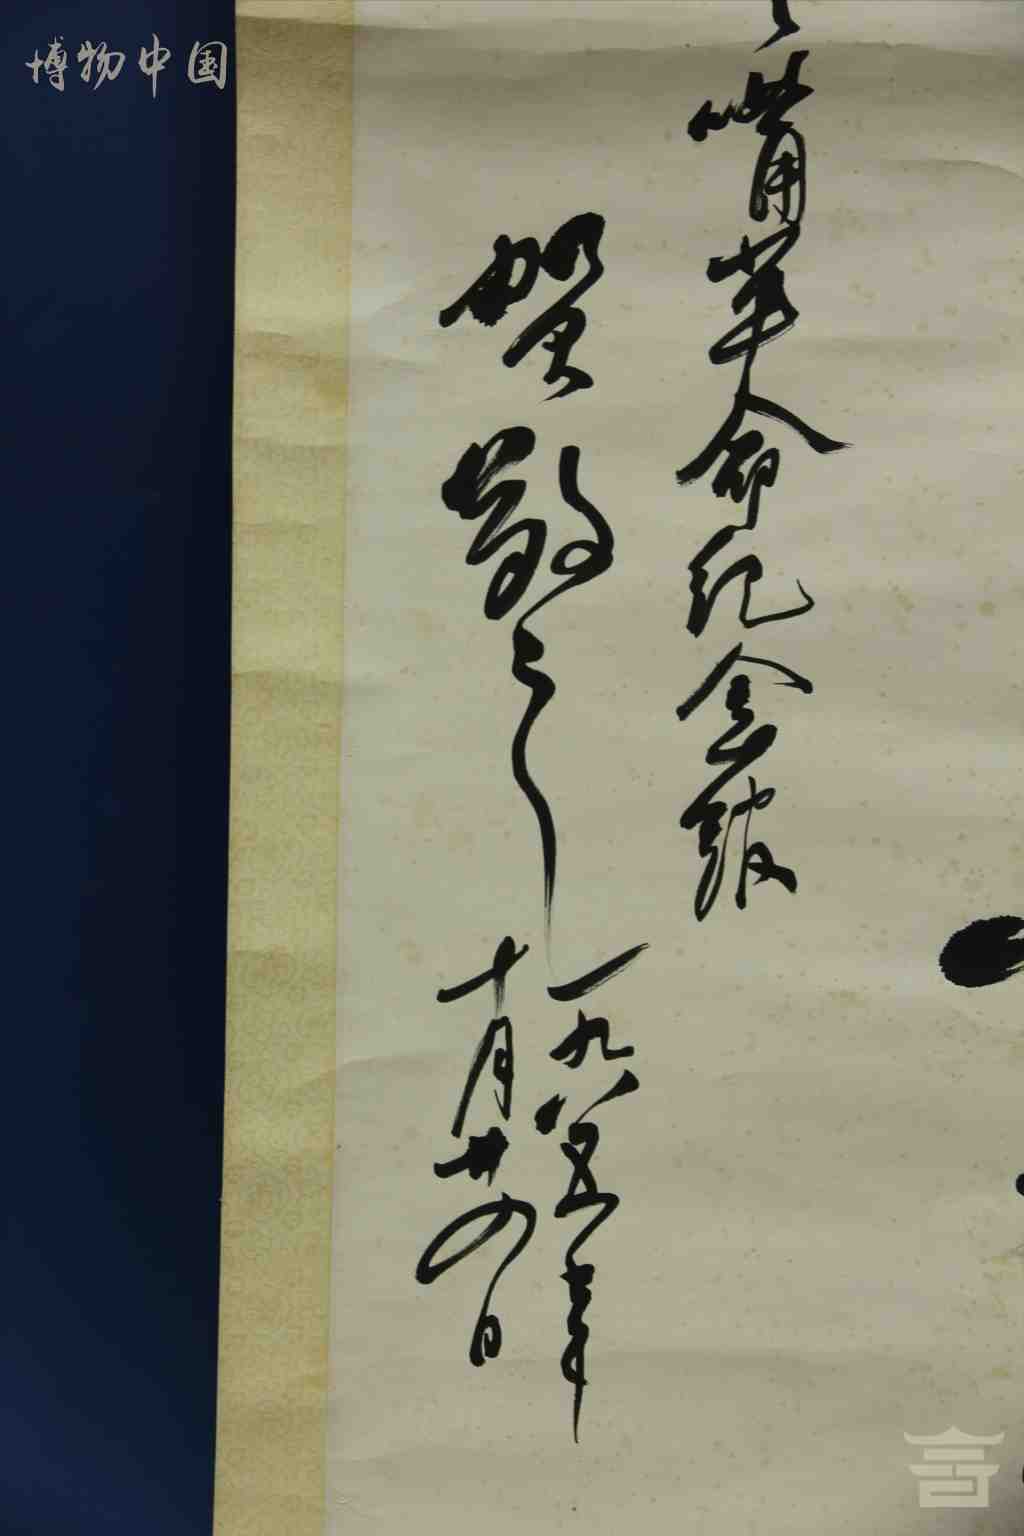 博物中国
嘴革命纪念馆
贺敬之
一九八五年
十月廿四日